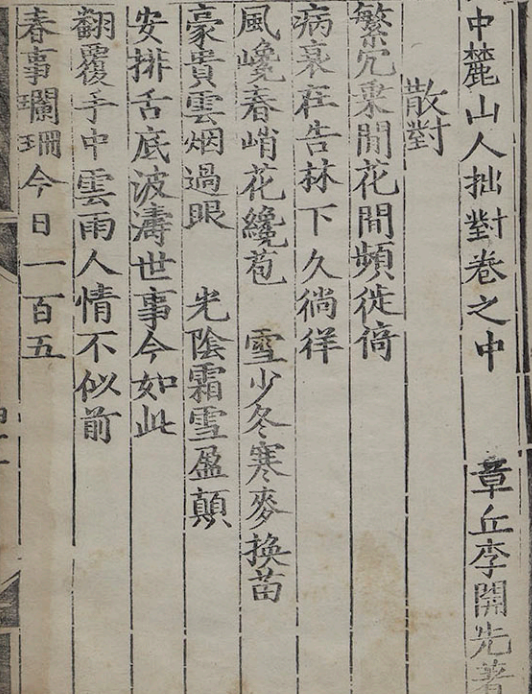 中麓山人拙對卷之中 章丘李開先著
散對
繁冗棄閒花間頻徙倚
病衰在告林下久徜徉
風巉春峭花纔苞 雪少冬寒麥換苗
豪貴雲烟過眼 光陰霜雪盈顛
安排舌底波濤世事今如此
翻覆手中雲雨人情不似前
春事斕珊今日一百五